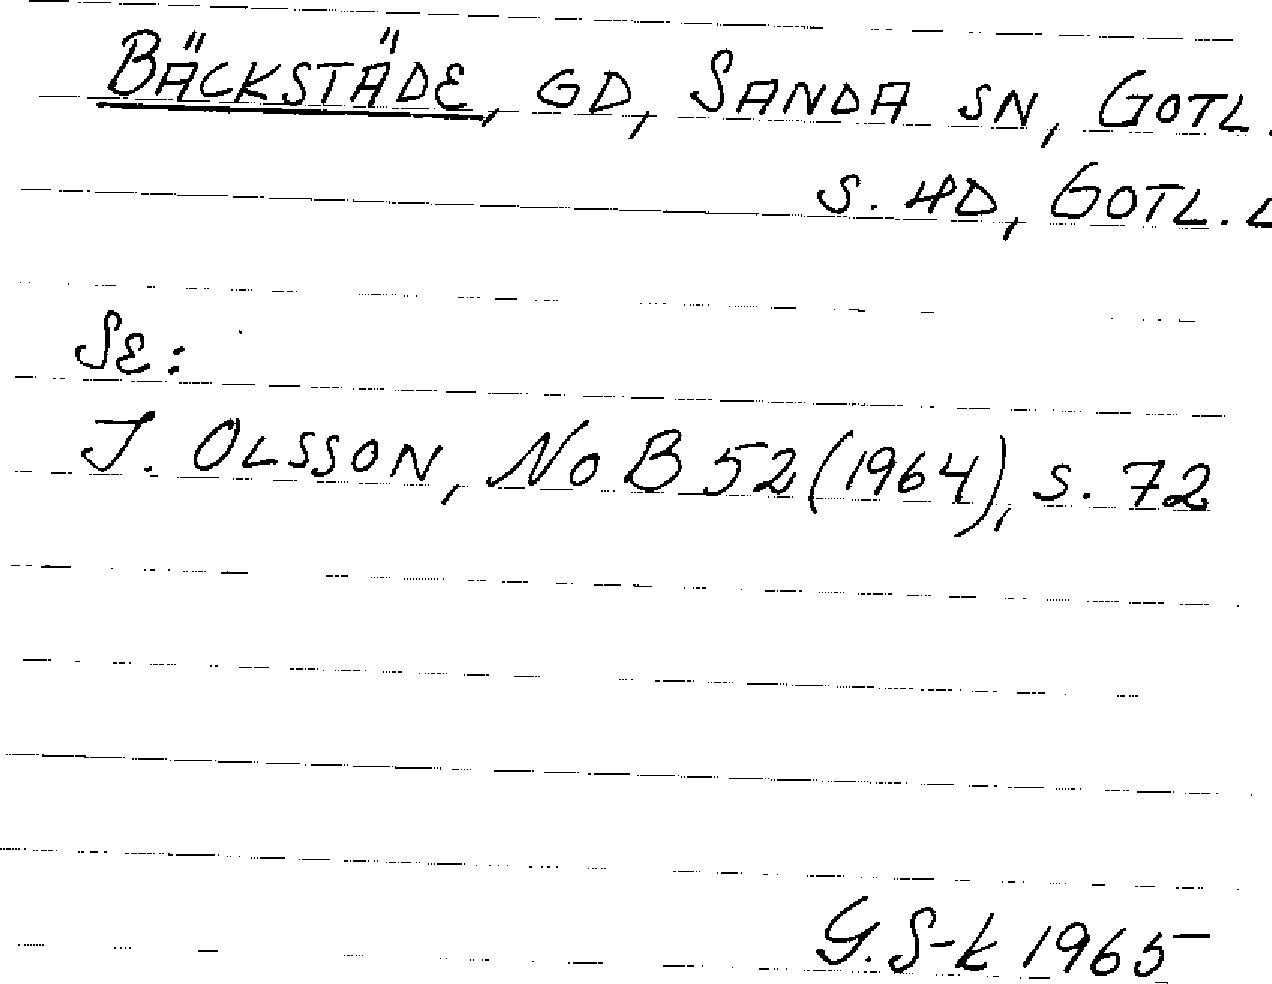 BÄCKSTÄDE, GD, SANDA SN, GOTL.
S. HD, GOTL. L
SE:
I. OLSSON, NoB 52 (1964), S. 72
G. S-k 1965